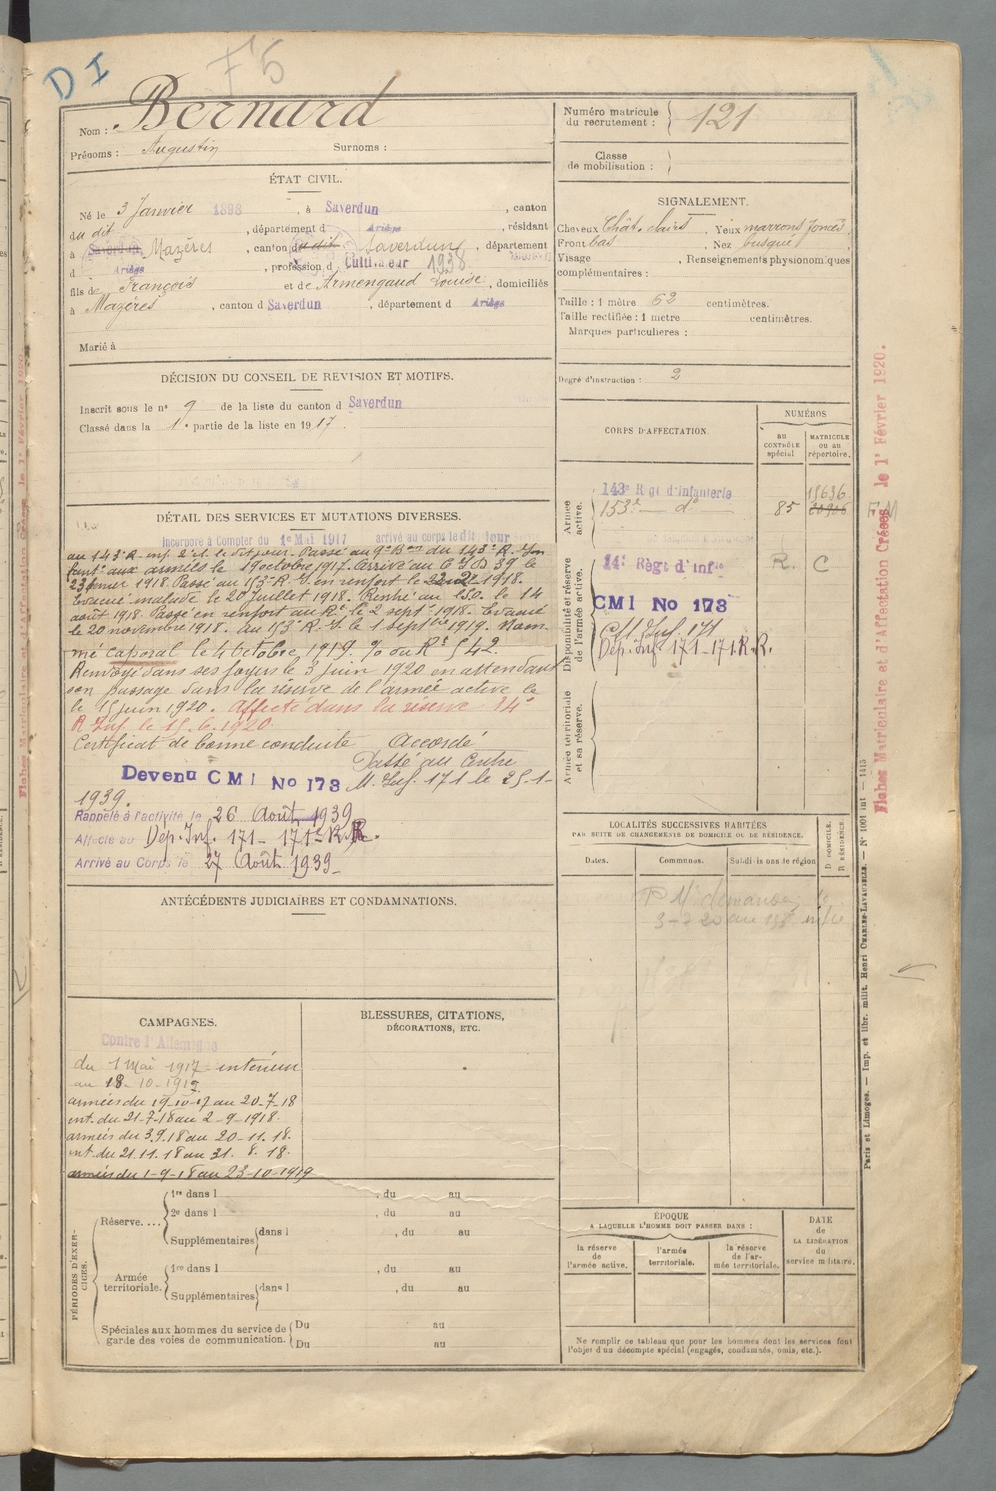 D I
F 5
Nom : Bernard
Prénoms : Augustin Surnoms :
Numéro matricule du recrutement : 121
Classe de mobilisation :
ÉTAT CIVIL.
Né le 3 Janvier 1898, à Saverdun, canton
du dit, département d Ariège, résidant
à Saverdun Mazères, canton du dit Saverdun, département
d Ariège, profession d Cultivateur 1938
fils de François et de Armengaud Louise, domiciliés
à Mazères, canton d Saverdun, département d Ariège
Marié à
SIGNALEMENT.
Cheveux Chât. clairs. Yeux marrons foncés
Front bas. Nez busqué
Visage . Renseignements physionomiques
complémentaires :
Taille : 1 mètre 62 centimètres.
Taille rectifiée : 1 mètre centimètres.
Marques particulières :
Degré d'instruction : 2
DÉCISION DU CONSEIL DE REVISION ET MOTIFS.
Inscrit sous le n° 9 de la liste du canton d Saverdun
Classé dans la 1e partie de la liste en 1917.
DÉTAIL DES SERVICES ET MUTATIONS DIVERSES.
Incorporé à Compter du 1er Mai 1917 arrivé au corps le dit jour
au 143e R. inf. 2e cl. le dit jour. Passé au 9e Bon du 143e R. Inf
fant. aux armées le 19 octobre 1917. Arrivé au C I D 39 le
23 février 1918. Passé au 153e R. I. en renfort le 1918.
Evacué malade le 20 Juillet 1918. Rentré au le 14
août 1918. Passé en renfort au Rt le 2 septe 1918. Evacué
le 20 novembre 1918. au 153e R. I. le 1 septbre 1919. Nom-
mé Caporal le 4 Octobre 1919. du Rt 542.
Renvoyé dans ses foyers le 3 juin 1920 en attendant
son passage dans la réserve de l'armée active le
le 15 juin 1920. Affecté dans la réserve 14e
R Inf. le 15.6.1920.
Certificat de bonne conduite Accordé
Passé au Centre
Devenu CMI No 173 M. Inf. 171 le 25-1-
1939.
Rappelé à l'activité le 26 Août 1939
Affecté au Dép. Inf. 171 - 171e R.R.
Arrivé au Corps le 27 Août 1939
CORPS D'AFFECTATION.
NUMÉROS
AU CONTRÔLE spécial
MATRICULE ou au répertoire.
Armée active.
143e Régt d'Infanterie 15636
153e — do 85
F M
Disponibilité et réserve de l'armée active.
14e Règt d'Infie R. C
CMI No 173
C M Inf 171
Dép. Inf. 171 - 171. R.R.
Armée territoriale et sa réserve.
LOCALITÉS SUCCESSIVES HABITÉES
PAR SUITE DE CHANGEMENTS DE DOMICILE OU DE RÉSIDENCE.
Dates. Communes. Subdivisions de région
D DOMICILE. R RÉSIDENCE.
ANTÉCÉDENTS JUDICIAIRES ET CONDAMNATIONS.
CAMPAGNES.
Contre l'Allemagne
du 1 Mai 1917 intérieur
au 18-10-1917
armées du 19-10-17 au 20-7-18
int. du 21-7-18 au 2-9-1918.
armées du 3.9.18 au 20-11.18.
int. du 21.11.18 au 31. 8. 18.
armées du 1-9-18 au 23-10-1919
BLESSURES, CITATIONS,
DÉCORATIONS, ETC.
PÉRIODES D'EXERCICES.
Réserve....
1re dans l , du au
2e dans l , du au
Supplémentaires dans l , du au
Armée territoriale.
1re dans l , du au
Supplémentaires dans l , du au
Spéciales aux hommes du service de garde des voies de communication.
Du au
Du au
ÉPOQUE
A LAQUELLE L'HOMME DOIT PASSER DANS :
la réserve de l'armée active.
l'armée territoriale.
la réserve de l'armée territoriale.
DATE DE LA LIBÉRATION du service militaire.
Ne remplir ce tableau que pour les hommes dont les services font
l'objet d'un décompte spécial (engagés, condamnés, omis, etc.).
Fiches Matriculaire et d'Affectation Créées le 1er Février 1920.
Paris et Limoges. — Imp. et libr. milit. Henri CHARLES-LAVAUZELLE. — N° 1001 int — 1415